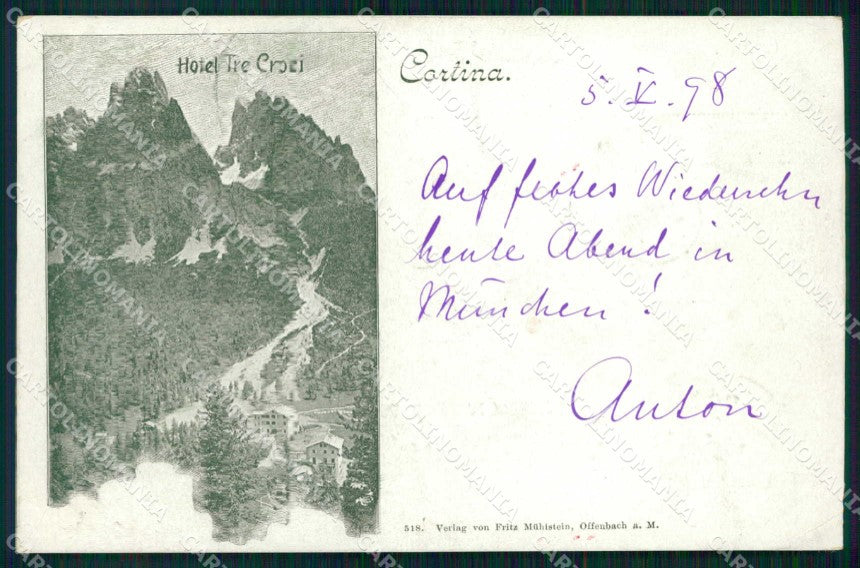 Hotel Tre Croci
Cortina.
5. V. 98
Auf frohes Wiedersehn
heute Abend in
München!
Anton
518. Verlag von Fritz Mühlstein, Offenbach a. M.
CARTOLINOMANIA